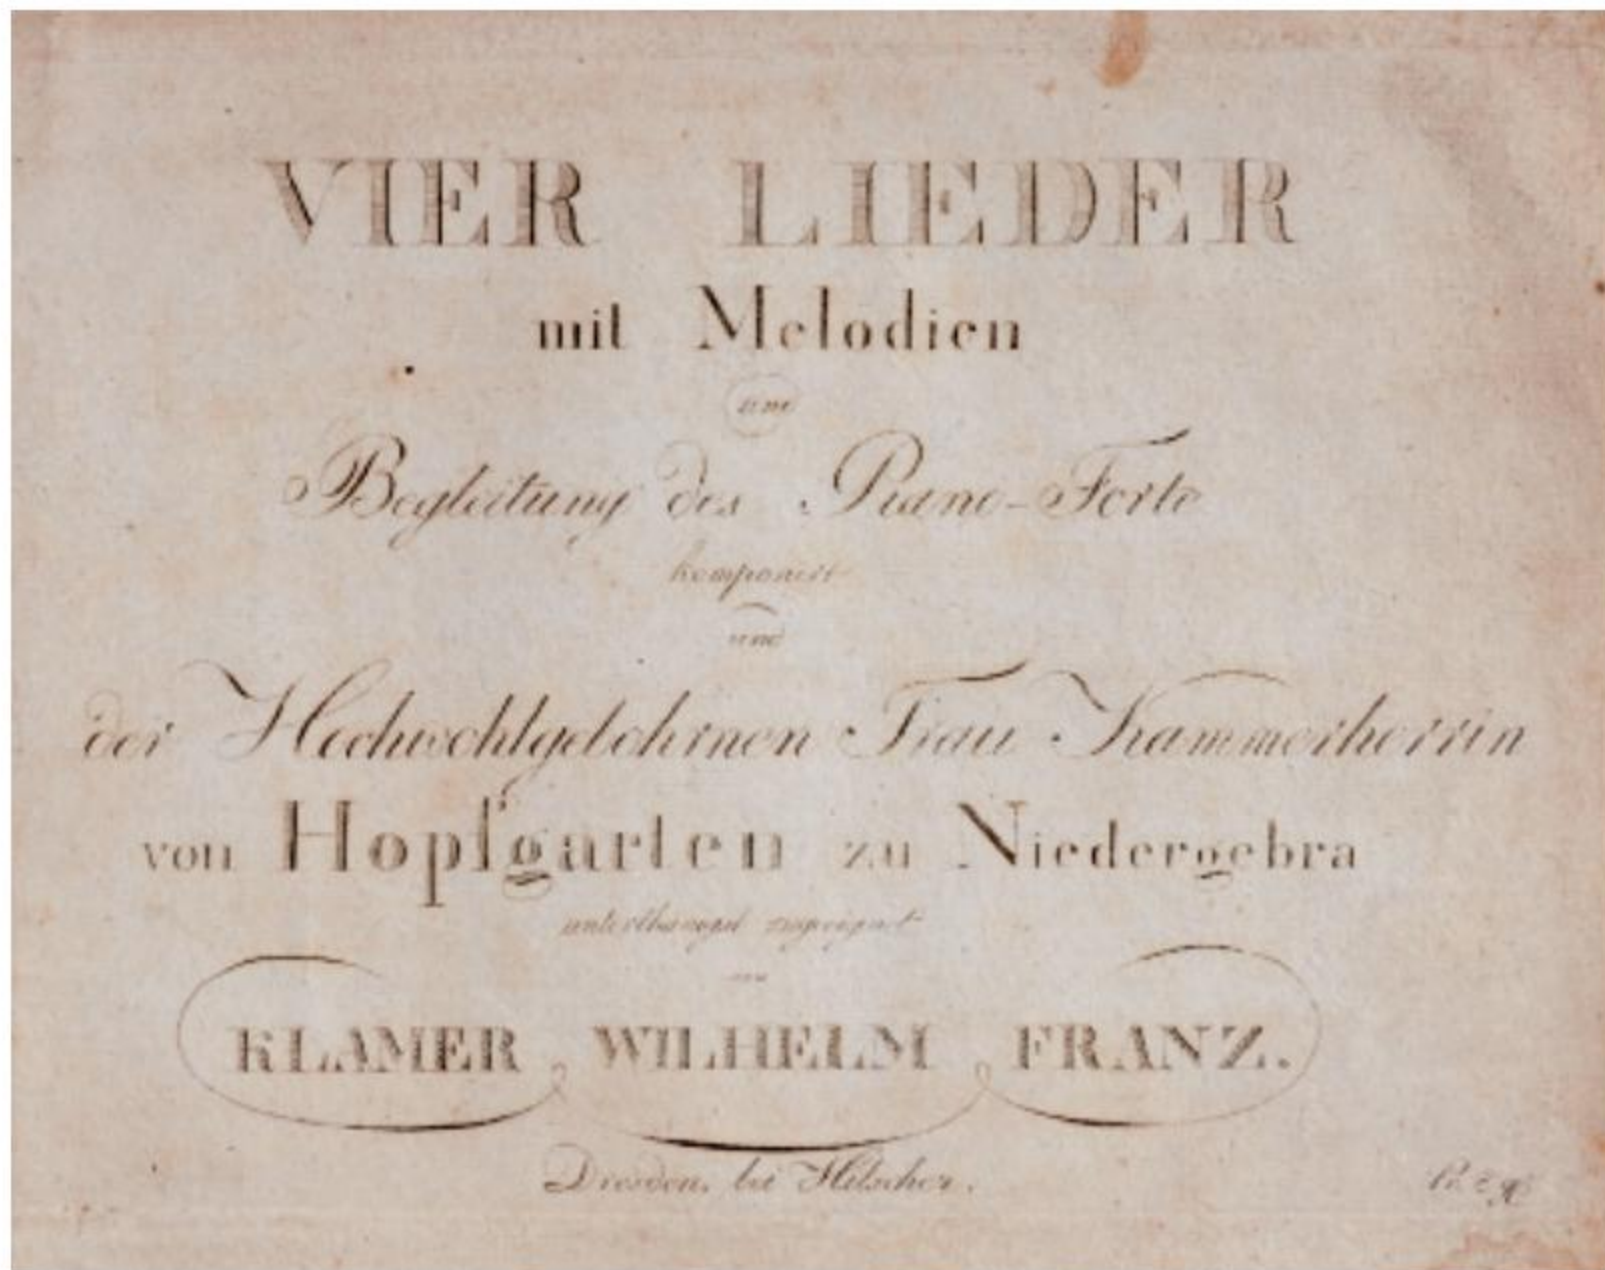 VIER LIEDER
mit Melodien
und
Begleitung des Piano-Forte
komponirt
und
der Hochwohlgebohrnen Frau Kammerherrin
von Hopfgarten zu Niedergebra
unterthänigst zugeeignet
von
KLAMER WILHELM FRANZ.
Dresden, bei Hilscher.